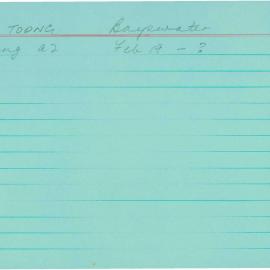 TOONG Bayswater
ng a2 Feb 19 - ?